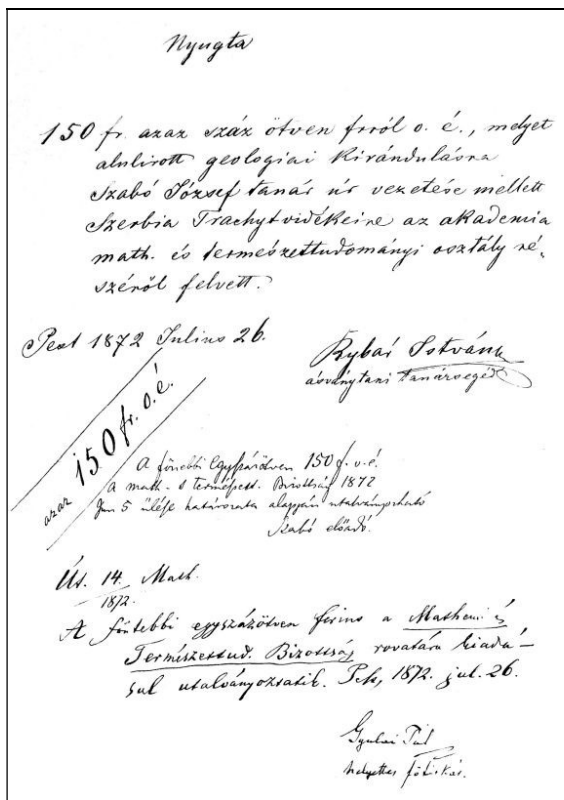 Nyugta
150 fr. azaz száz ötven frról o. é., melyet
alulirott geologiai kirándulásra
Szabó József tanár úr vezetése mellett
Szerbia Trachytvidékeire az akademia
math. és természettudományi osztály ré-
széröl felvett.
Pest 1872 Julius 26.
Rybár István
ásványtani tanársegéd
azaz 150 fr. o. é.
A föntebbi Egyszázötven 150 f. o. é.
a math. s természett. Bizottság 1872
5 ülése határozata alapján utalványozható
Szabó előadó.
Út. 14. Math.
1872.
A föntebbi egyszázötven forint a Mathem. és
Természettud. Bizottság rovatára kiadá-
sul utalványoztatik. Pest, 1872. jul. 26.
Gyulai Pál
helyettes főtitkár.